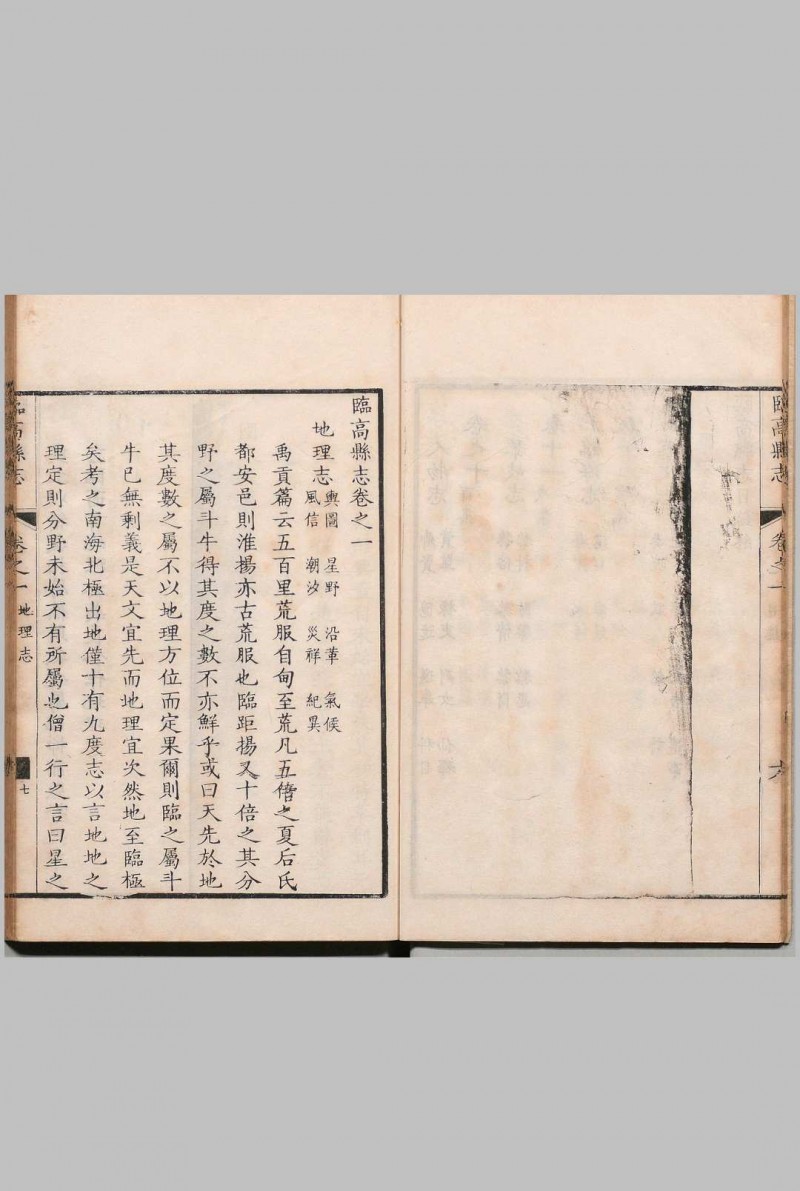 臨高縣志
卷之一
六
臨高縣志卷之一
地理志
輿圖 星野 沿革 氣候
風信 潮汐 災祥 紀異
禹貢篇云五百里荒服自甸至荒凡五偺之夏后氏
都安邑則淮揚亦古荒服也臨距揚又十倍之其分
野之屬斗牛得其度之數不亦鮮乎或曰天先於地
其度數之屬不以地理方位而定果爾則臨之屬斗
牛已無剩義是天文宜先而地理宜次然地至臨極
矣考之南海北極出地僅十有九度志以言地地之
理定則分野未始不有所屬也僧一行之言曰星之
臨高縣志
卷之一
地理志
七